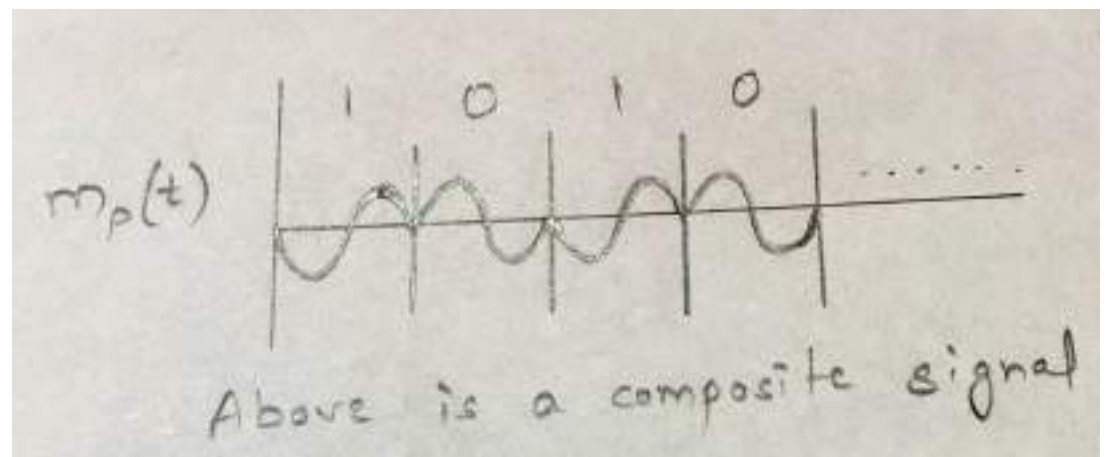 1 0 1 0
m_p(t) .......
Above is a composite signal